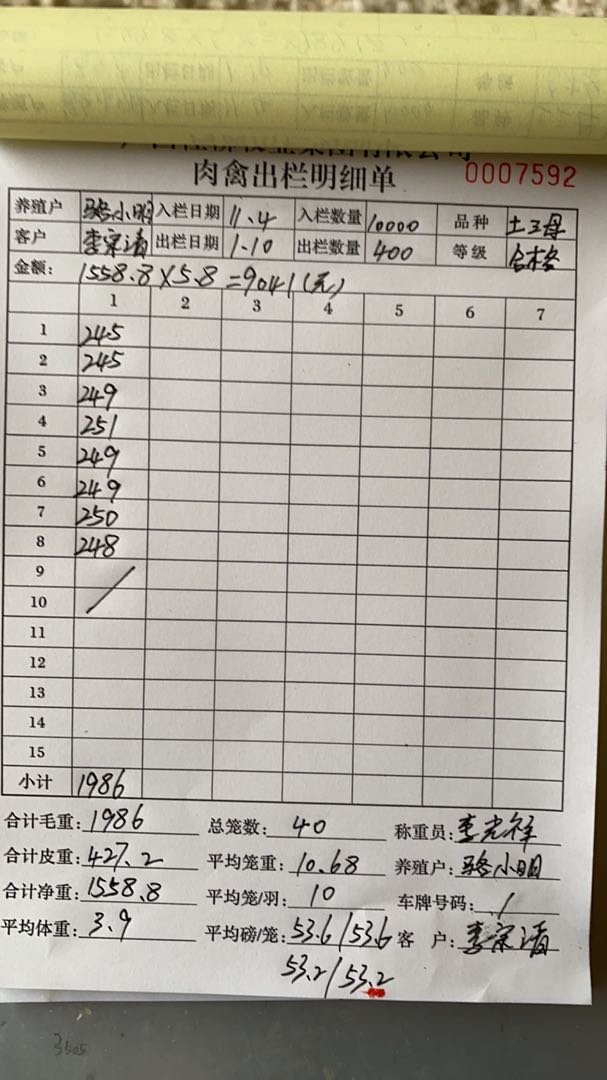 肉禽出栏明细单 0007592
养殖户 骆小明 入栏日期 11.4 入栏数量 10000 品种 土王母
客户 李宗清 出栏日期 1-10 出栏数量 400 等级 合格
金额: 1558.8×5.8=9041(元)
1 2 3 4 5 6 7
1 245
2 245
3 249
4 251
5 249
6 249
7 250
8 248
9
10
11
12
13
14
15
小计 1986
合计毛重: 1986 总笼数: 40 称重员: 李光祥
合计皮重: 427.2 平均笼重: 10.68 养殖户: 骆小明
合计净重: 1558.8 平均笼/羽: 10 车牌号码: /
平均体重: 3.9 平均磅/笼: 53.6/53.6 客 户: 李宗清
53.2/53.2
3505